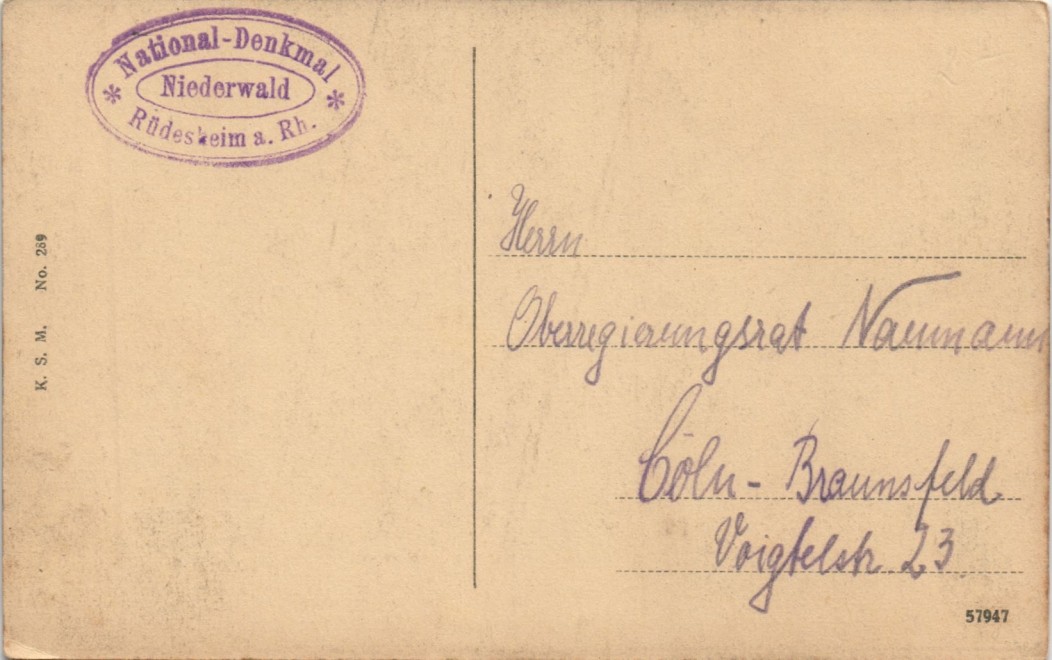 National-Denkmal
* Niederwald *
Rüdesheim a. Rh.
K. S. M. No. 289
Herrn
Oberregierungsrat Naumann
Cöln-Braunsfeld
Voigtelstr. 23
57947